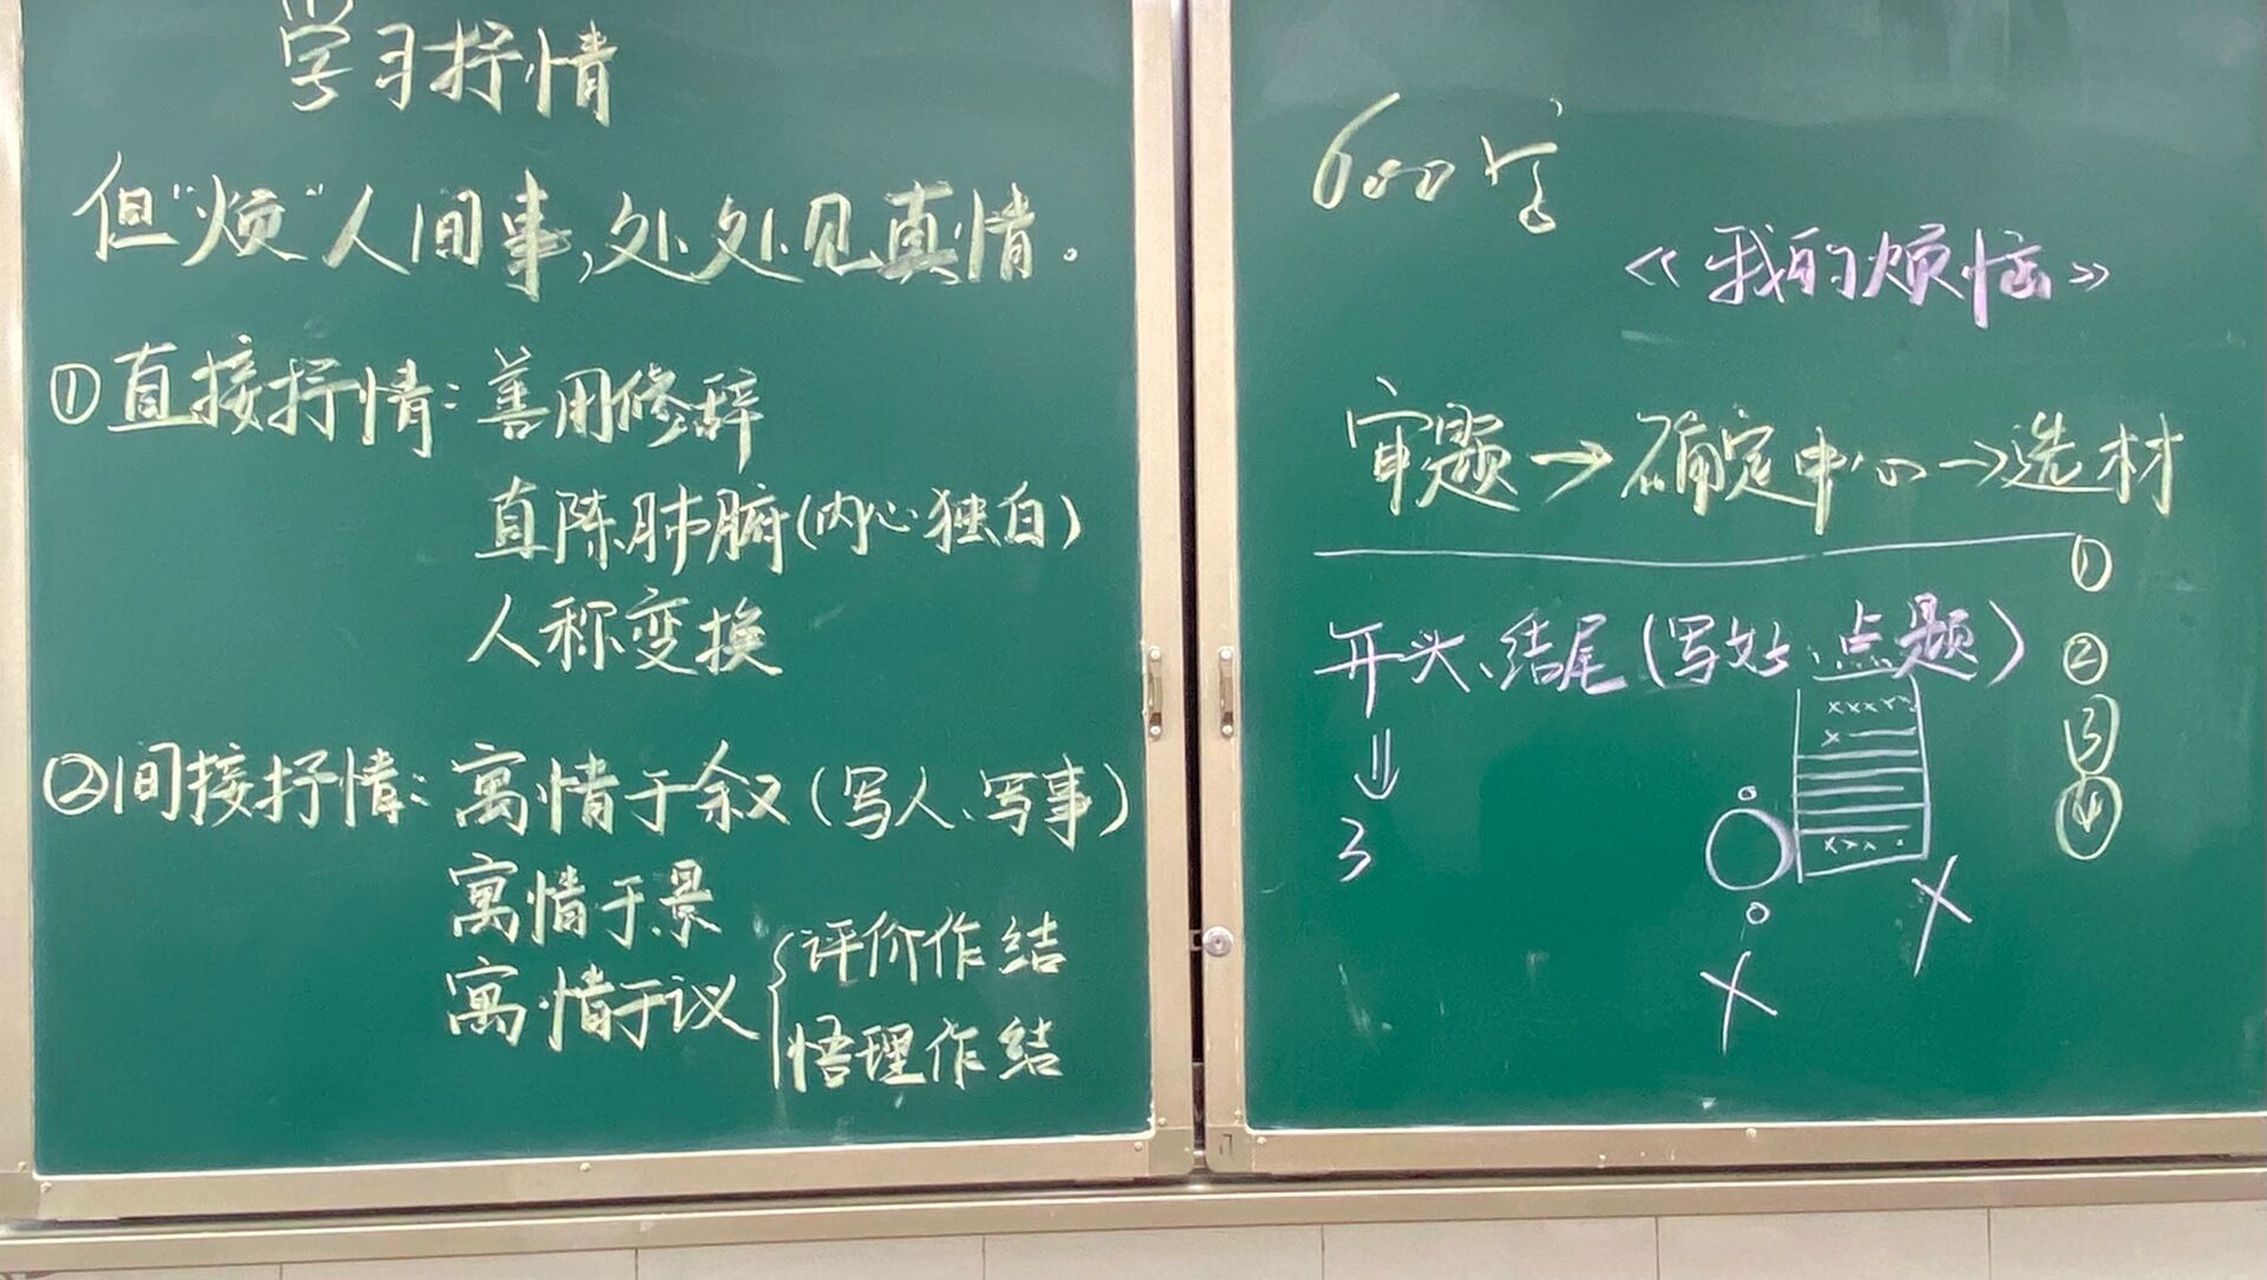 学习抒情
但“烦”人间事,处处见真情。
①直接抒情:善用修辞
直陈肺腑(内心独白)
人称变换
②间接抒情:寓情于叙(写人、写事)
寓情于景
寓情于议
评价作结
悟理作结
600字
《我的烦恼》
审题→确定中心→选材
①
②
③
④
开头、结尾(写好点题)
⇓
3
xxxxx
x
xxx